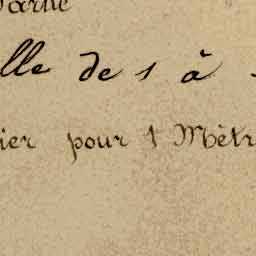 lle de 1 à
ier pour 1 Mètr